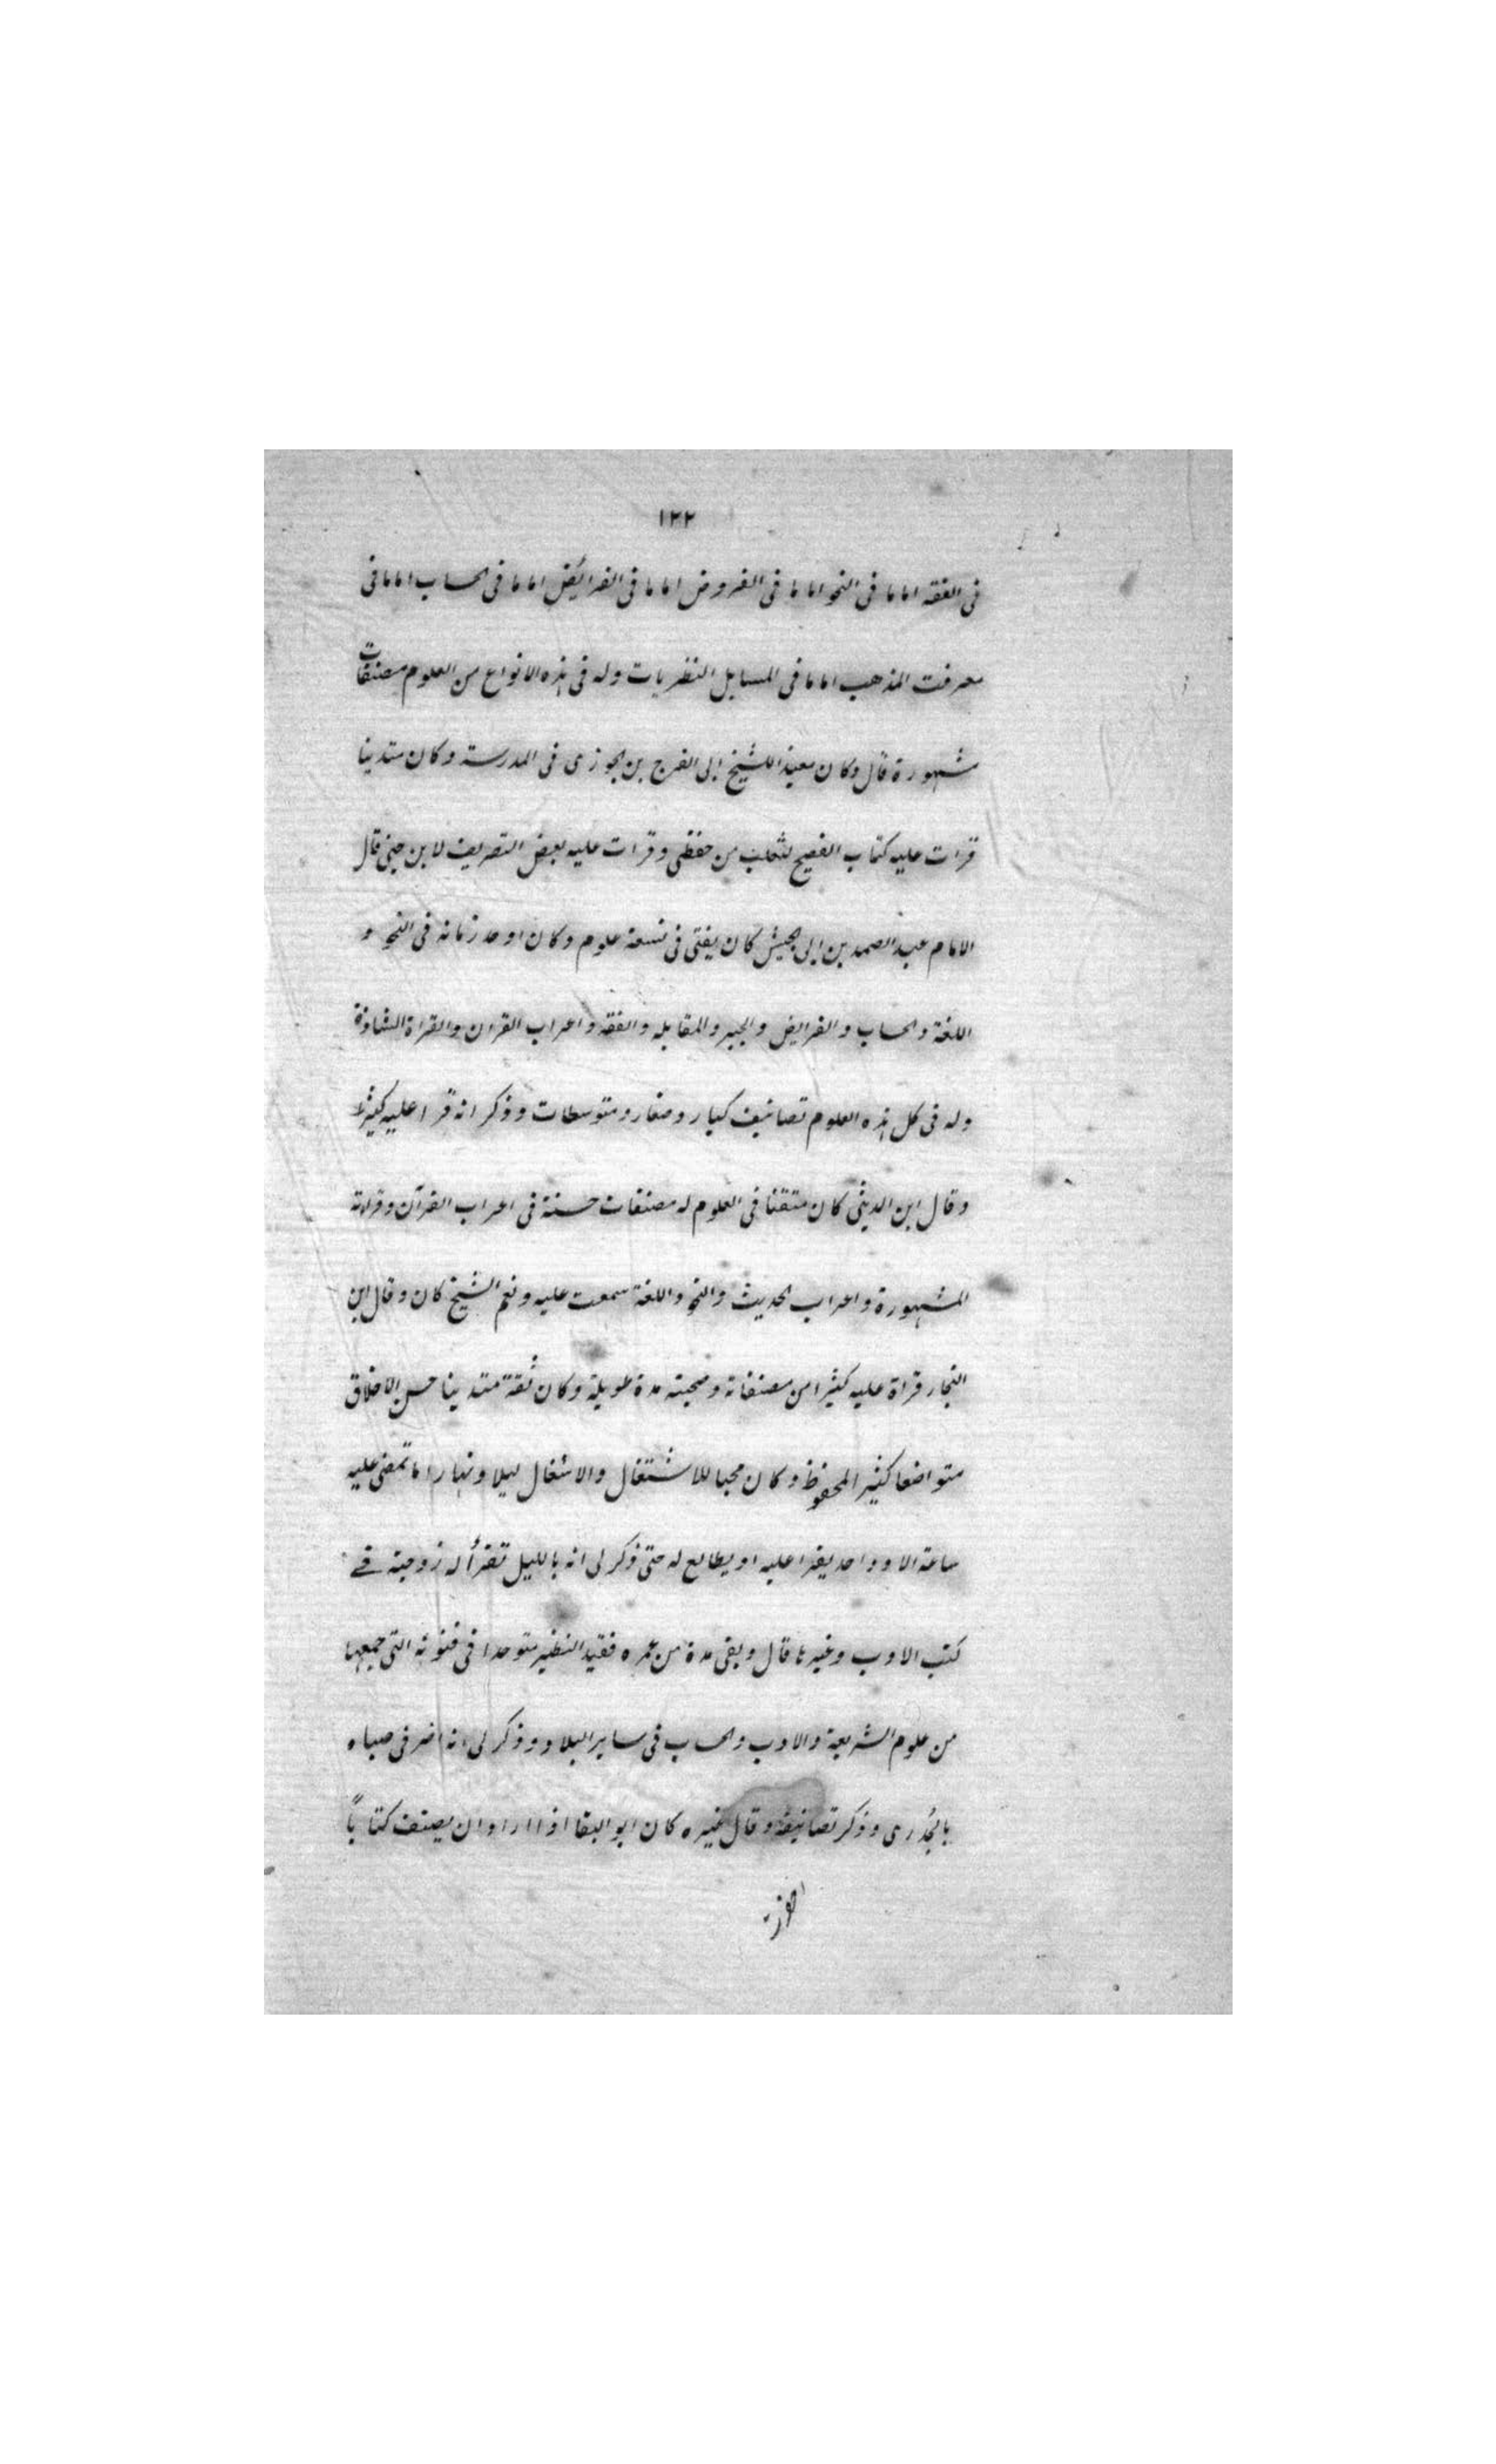 ١٢٢
فى الفقه اماما فى النحو اماما فى العروض اماما فى الفرائض اماما فى الحساب اماما فى
معرفت المذهب اماما فى المسايل النظريات وله فى هذه الانواع من العلوم مصنفات
مشهورة قال وكان معيد اللشيخ ابى الفرج بن الجوزى فى المدرسة وكان متدينا
قرات عليه كتاب الفصيح لثعلب من حفظى وقرات عليه بعض التصريف لابن جنى قال
الامام عبد الصمد بن ابى الجيش كان يفتى فى تسعة علوم وكان اوحد زمانه فى النحو و
اللغة والحساب والفرايض والجبر والمقابله والفقه واعراب القران والقراة الشاذة
وله فى كل هذه العلوم تصانيف كبار وصغار ومتوسطات وذكر انه قرا عليه كثيرا
وقال ابن الدبيثى كان متفننا فى العلوم له مصنفات حسنة فى اعراب القرآن وقراءته
المشهورة واعراب الحديث والنحو واللغة سمعت عليه ونعم الشيخ كان وقال ابن
النجار قراة عليه كثيرا من مصنفاته وصحبته مدة طويلة وكان ثقة متدينا حسن الاخلاق
متواضعا كثير المحفوظ وكان محبا للاشتغال والاشغال ليلا ونهارا ما تمضى عليه
ساعة الا وواحد يقرا عليه او يطالع له حتى ذكر لى انه بالليل تقرأ له زوجته فے
كتب الادب وغيرها قال وبقى مدة من عمره فقيد النظير متوحدا فى فنونه التى جمعها
من علوم الشريعة والادب والحساب فى ساير البلاد وذكر لى انه اضر فى صباه
بالجُدرى وذكر تصانيفه وقال غيره كان ابو البقا اذا اراد ان يصنف كتاباً